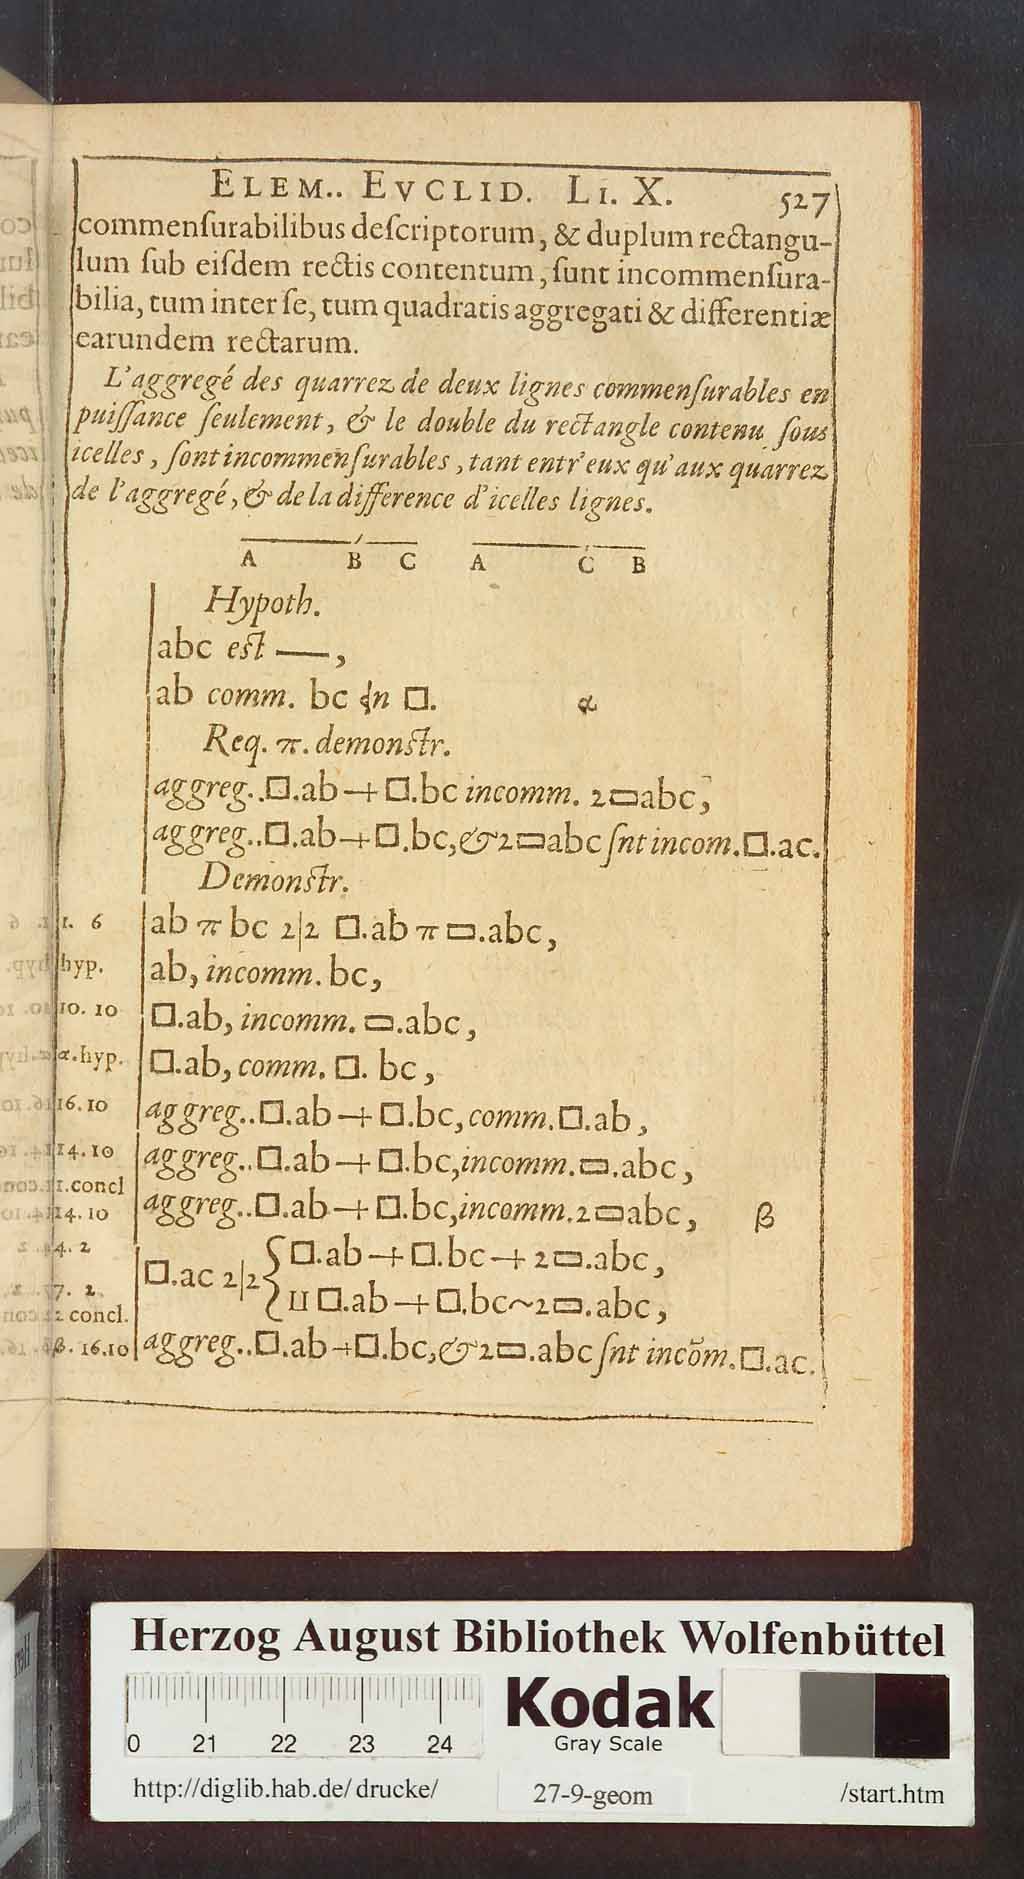 ELEM.. EVCLID. LI. X. 527
commenſurabilibus deſcriptorum, & duplum rectangu-
lum ſub eiſdem rectis contentum, ſunt incommenſura-
bilia, tum inter ſe, tum quadratis aggregati & differentiæ
earundem rectarum.
L'aggregé des quarrez de deux lignes commenſurables en
puiſſance ſeulement, & le double du rectangle contenu ſous
icelles, ſont incommenſurables, tant entr'eux qu'aux quarrez
de l'aggregé, & de la difference d'icelles lignes.
A B C A C B
Hypoth.
abc est —,
ab comm. bc ɨn □. α
Req. π. demonstr.
aggreg..□.ab + □.bc incomm. 2▭abc,
aggreg..□.ab + □.bc, & 2▭abc ſnt incom. □.ac.
Demonstr.
1. 6 ab π bc 2|2 □.ab π ▭.abc,
hyp. ab, incomm. bc,
10. 10 □.ab, incomm. ▭.abc,
α.hyp. □.ab, comm. □. bc,
16.10 aggreg..□.ab + □.bc, comm. □.ab,
14.10 aggreg..□.ab + □.bc, incomm. ▭.abc,
1.concl
14. 10 aggreg..□.ab + □.bc, incomm. 2▭abc, β
4. 2 □.ac 2|2 { □.ab + □.bc + 2▭.abc,
7. 2 II □.ab + □.bc ~ 2▭.abc,
2 concl.
β. 16.10 aggreg..□.ab + □.bc, & 2▭.abc ſnt incõm. □.ac.
Herzog August Bibliothek Wolfenbüttel
0 21 22 23 24
Kodak
Gray Scale
http://diglib.hab.de/drucke/ 27-9-geom /start.htm